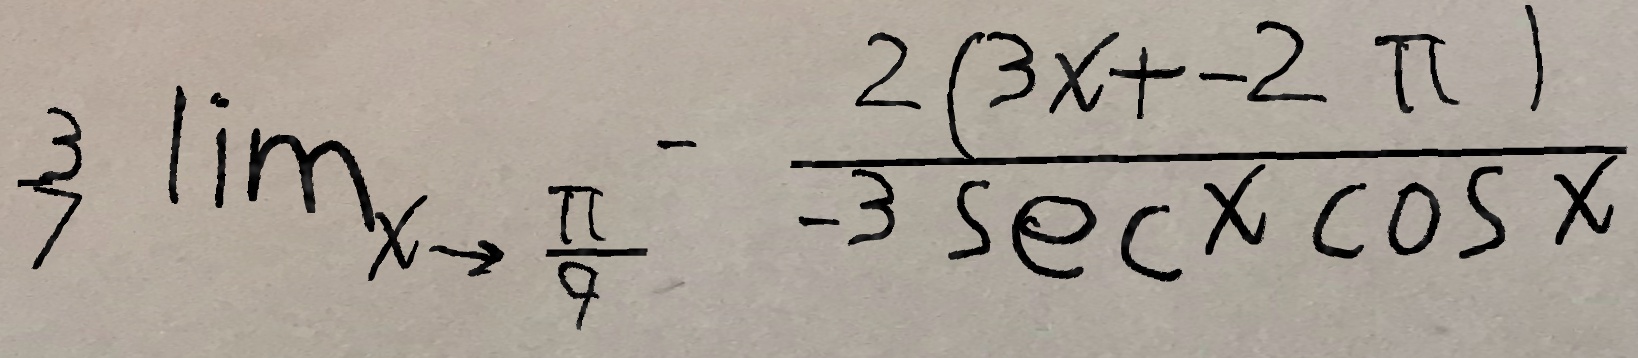 \frac{3}{7} \lim_{x \to \frac{\pi}{9}^-} \frac{2(3x+-2\pi)}{-3\sec x \cos x}